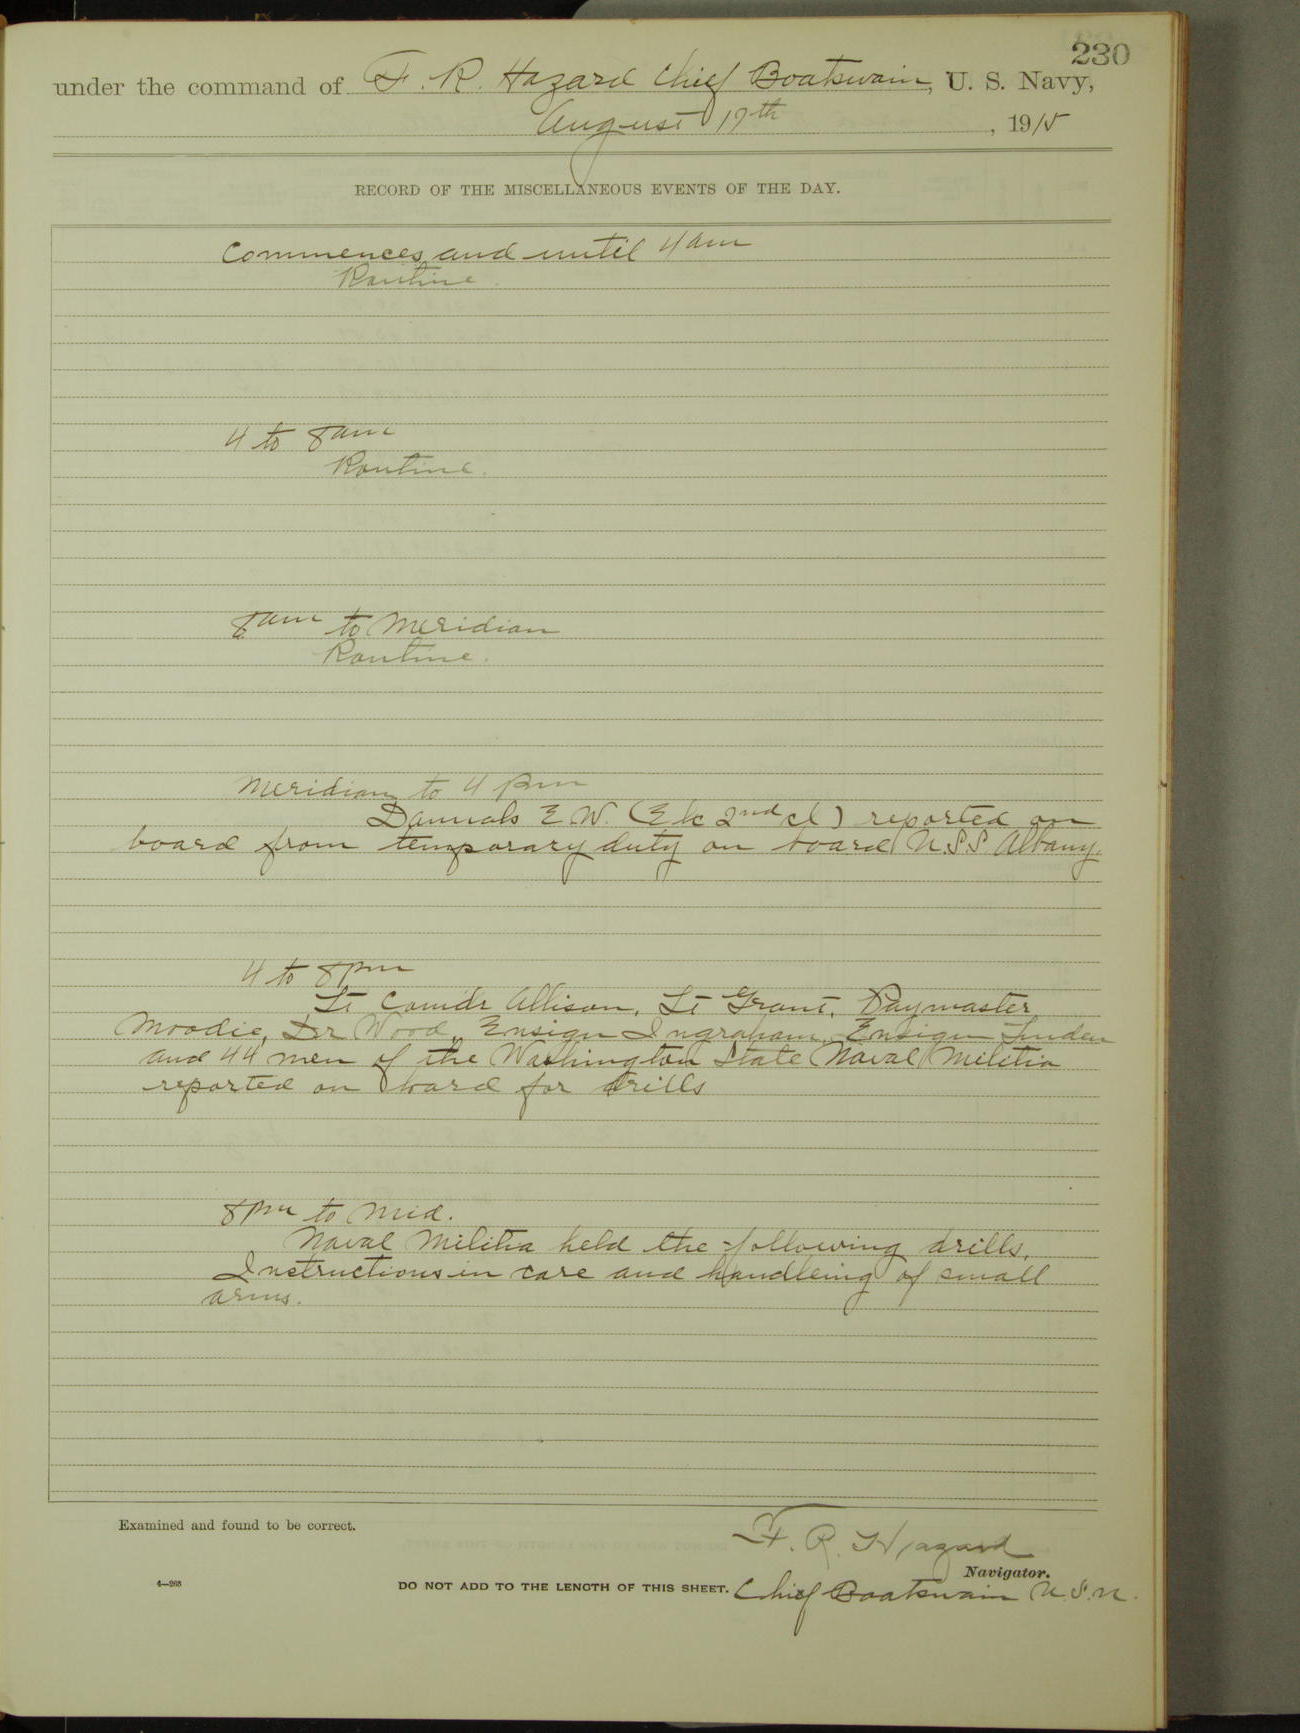 230
under the command of F. R. Hazard Chief Boatswain, U. S. Navy,
August 17th, 1915
RECORD OF THE MISCELLANEOUS EVENTS OF THE DAY.
Commences and until 4 am
Routine.
4 to 8 am
Routine.
8 am to Meridian
Routine.
Meridian to 4 pm
E. W. (Elc 2nd cl) reported on
board from temporary duty on board U.S.S. Albany.
4 to 8 pm
Lt Comdr Allison, Lt Grant, Paymaster
Moodie, Dr Wood, Ensign Ingraham, Ensign
and 44 men of the Washington State Naval Militia
reported on board for drills
8 pm to Mid.
Naval Militia held the following drills,
Instructions in care and handleing of small
arms.
Examined and found to be correct.
F. R. Hazard
Navigator.
4—268
DO NOT ADD TO THE LENGTH OF THIS SHEET. Chief Boatswain U.S.N.